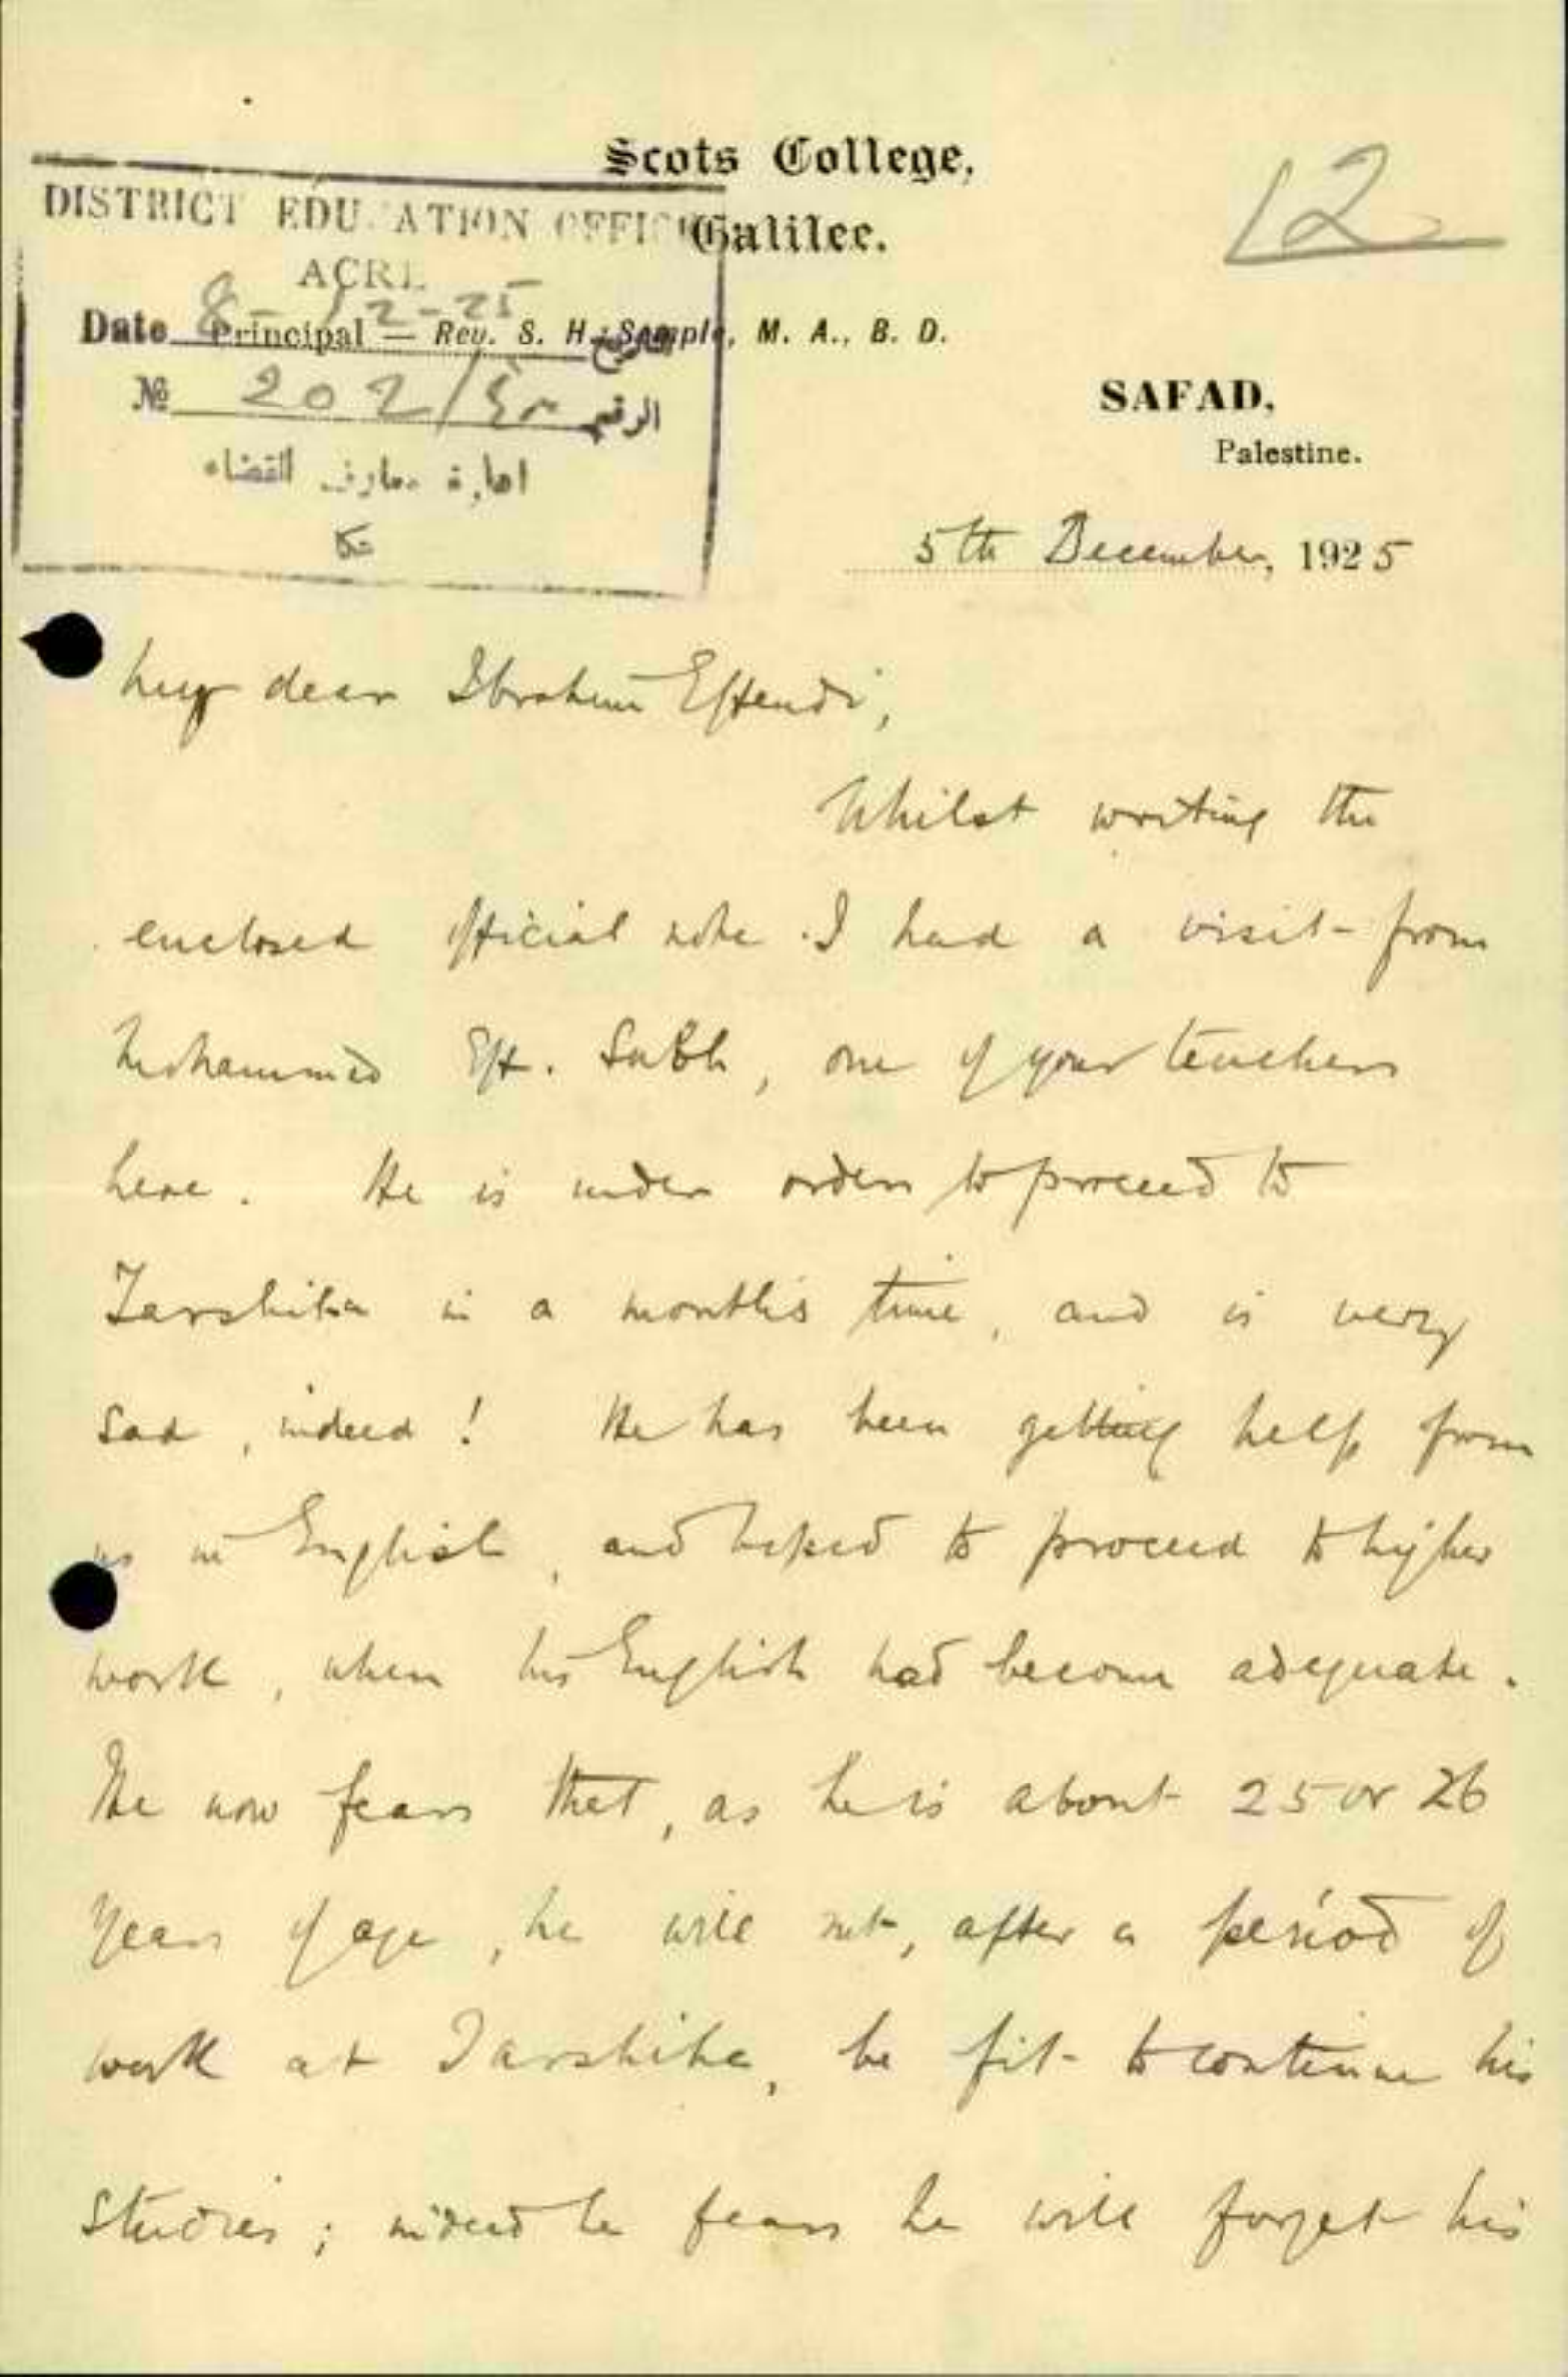 Scots College,
Galilee.
12
DISTRICT EDU ATION OFFIC
ACRE
Date 8-12-25 التاريخ
Principal — Rev. S. H. Semple, M. A., B. D.
№ 202/ الرقم
ادارة معارف القضاء
عكا
SAFAD,
Palestine.
5th December, 1925
My dear Ibrahim Effendi,
Whilst writing the
enclosed official note I had a visit from
Mohammed Eff. Subh, one of your teachers
here. He is under orders to proceed to
Tarshiha in a month's time, and is very
sad, indeed! He has been getting help from
us in English, and hoped to proceed to higher
work, when his English had become adequate.
He now fears that, as he is about 25 or 26
years of age, he will not, after a period of
work at Tarshiha, be fit to continue his
studies; indeed he fears he will forget his